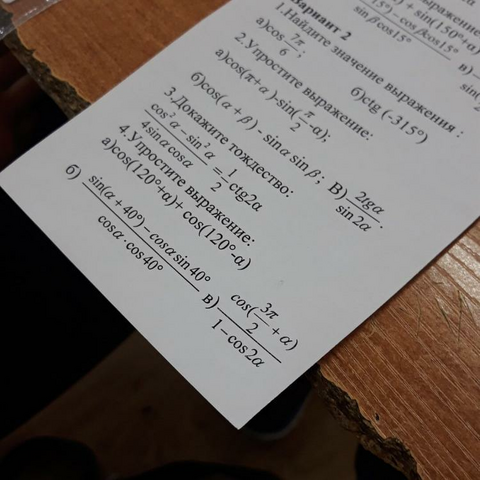 выражение
) + sin(150°+α)
15°) – cosβcos15°
sinβcos15°
Вариант 2
1.Найдите значение выражения :
а)cos 7π/6 ;
б)ctg (-315°)
2.Упростите выражение:
а)cos(π+α)-sin(π/2-α);
б)cos(α + β) - sinα sinβ ; В) 2tgα/sin 2α .
3.Докажите тождество:
cos²α – sin²α / 4sinα cosα = 1/2 ctg2α
4.Упростите выражение:
а)cos(120°+α)+ cos(120°-α)
б) sin(α + 40°) – cosα sin 40° / cosα · cos40°
в) cos(3π/2 + α) / 1 – cos2α